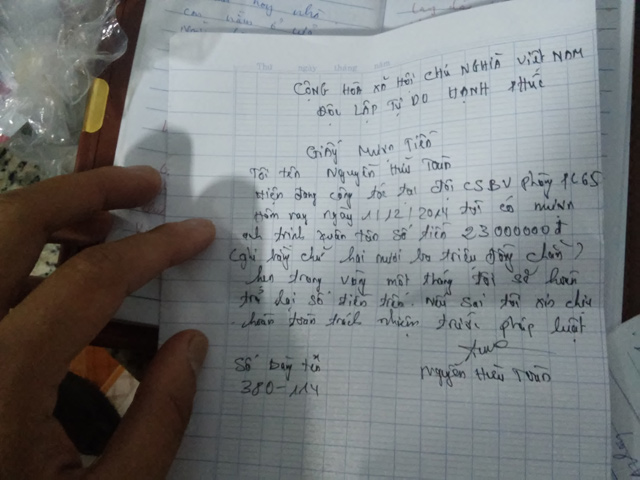 Thứ ngày tháng năm
CỘNG HÒA XÃ HỘI CHỦ NGHĨA VIỆT NAM
ĐỘC LẬP TỰ DO HẠNH PHÚC
Giấy Mượn Tiền
Tôi tên Nguyễn Hữu Toàn
Hiện đang công tác tại đội CSBV phòng PC65
Hôm nay ngày 1/12/2014 tôi có mượn
anh Trình Xuân số tiền 23000000đ
(ghi bằng chữ hai mươi ba triệu đồng chẵn)
hẹn trong vòng một tháng tôi sẽ hoàn
trả lại số tiền trên. Nếu sai tôi xin chịu
hoàn toàn trách nhiệm trước pháp luật
Nguyễn Hữu Toàn
Số
380-114